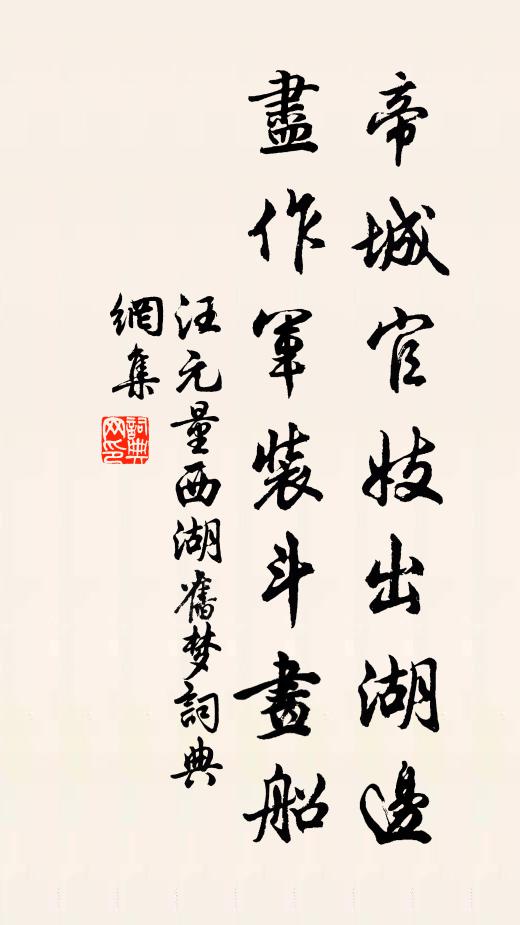 帝城官妓出湖邊
盡作軍裝斗畫船
汪元量西湖舊梦詞典
網集
詞典
网印